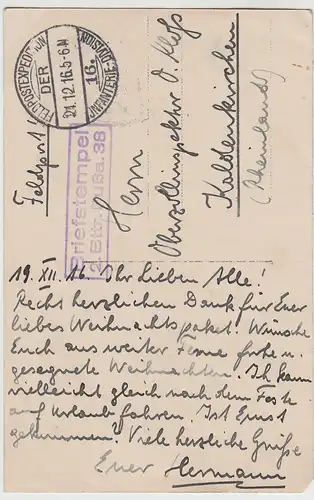 FELDPOSTEXPEDITION
DER
16. INFANTERIE-DIVISION
21.12.16.5-6N
Feldpost
Briefstempel
2. Battr. Fußa. 38
Herrn
Oberzollinspektor O. Kloß
Kaldenkirchen
(Rheinland)
19. XII. 16. Ihr Lieben Alle!
Recht herzlichen Dank für Euer
liebes Weihnachtspaket! Wünsche
Euch aus weiter Ferne frohe u.
gesegnete Weihnachten. Ich kann
vielleicht gleich nach dem Feste
auf Urlaub fahren. Ist Ernst
gekommen? Viele herzliche Grüße
Euer Hermann